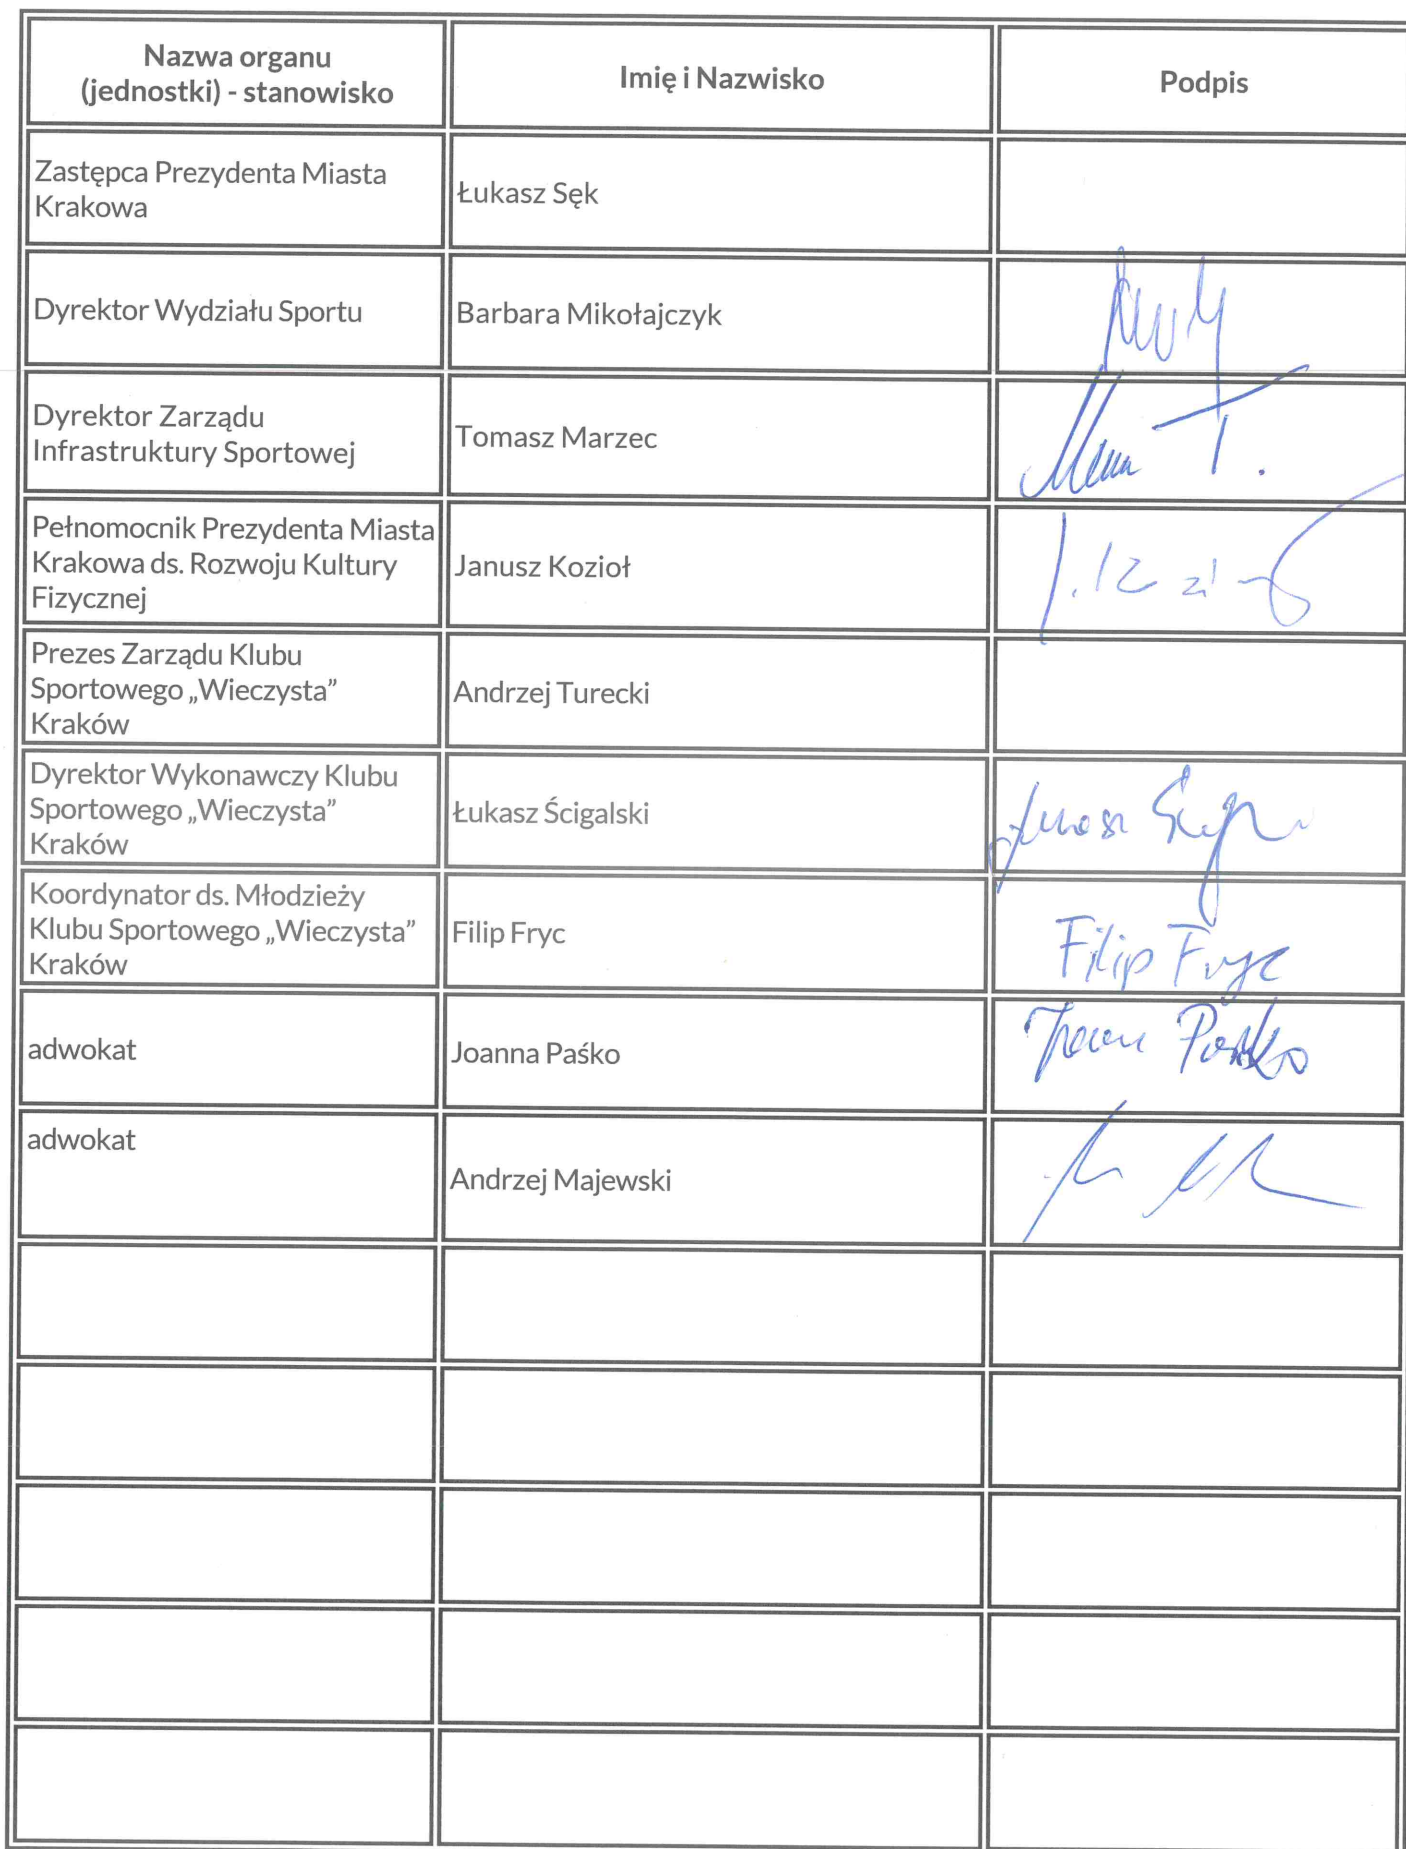 Nazwa organu
(jednostki) - stanowisko
Imię i Nazwisko
Podpis
Zastępca Prezydenta Miasta
Krakowa
Łukasz Sęk
Dyrektor Wydziału Sportu
Barbara Mikołajczyk
Dyrektor Zarządu
Infrastruktury Sportowej
Tomasz Marzec
Pełnomocnik Prezydenta Miasta
Krakowa ds. Rozwoju Kultury
Fizycznej
Janusz Kozioł
Prezes Zarządu Klubu
Sportowego „Wieczysta”
Kraków
Andrzej Turecki
Dyrektor Wykonawczy Klubu
Sportowego „Wieczysta”
Kraków
Łukasz Ścigalski
Koordynator ds. Młodzieży
Klubu Sportowego „Wieczysta”
Kraków
Filip Fryc
Filip Fryc
adwokat
Joanna Paśko
adwokat
Andrzej Majewski